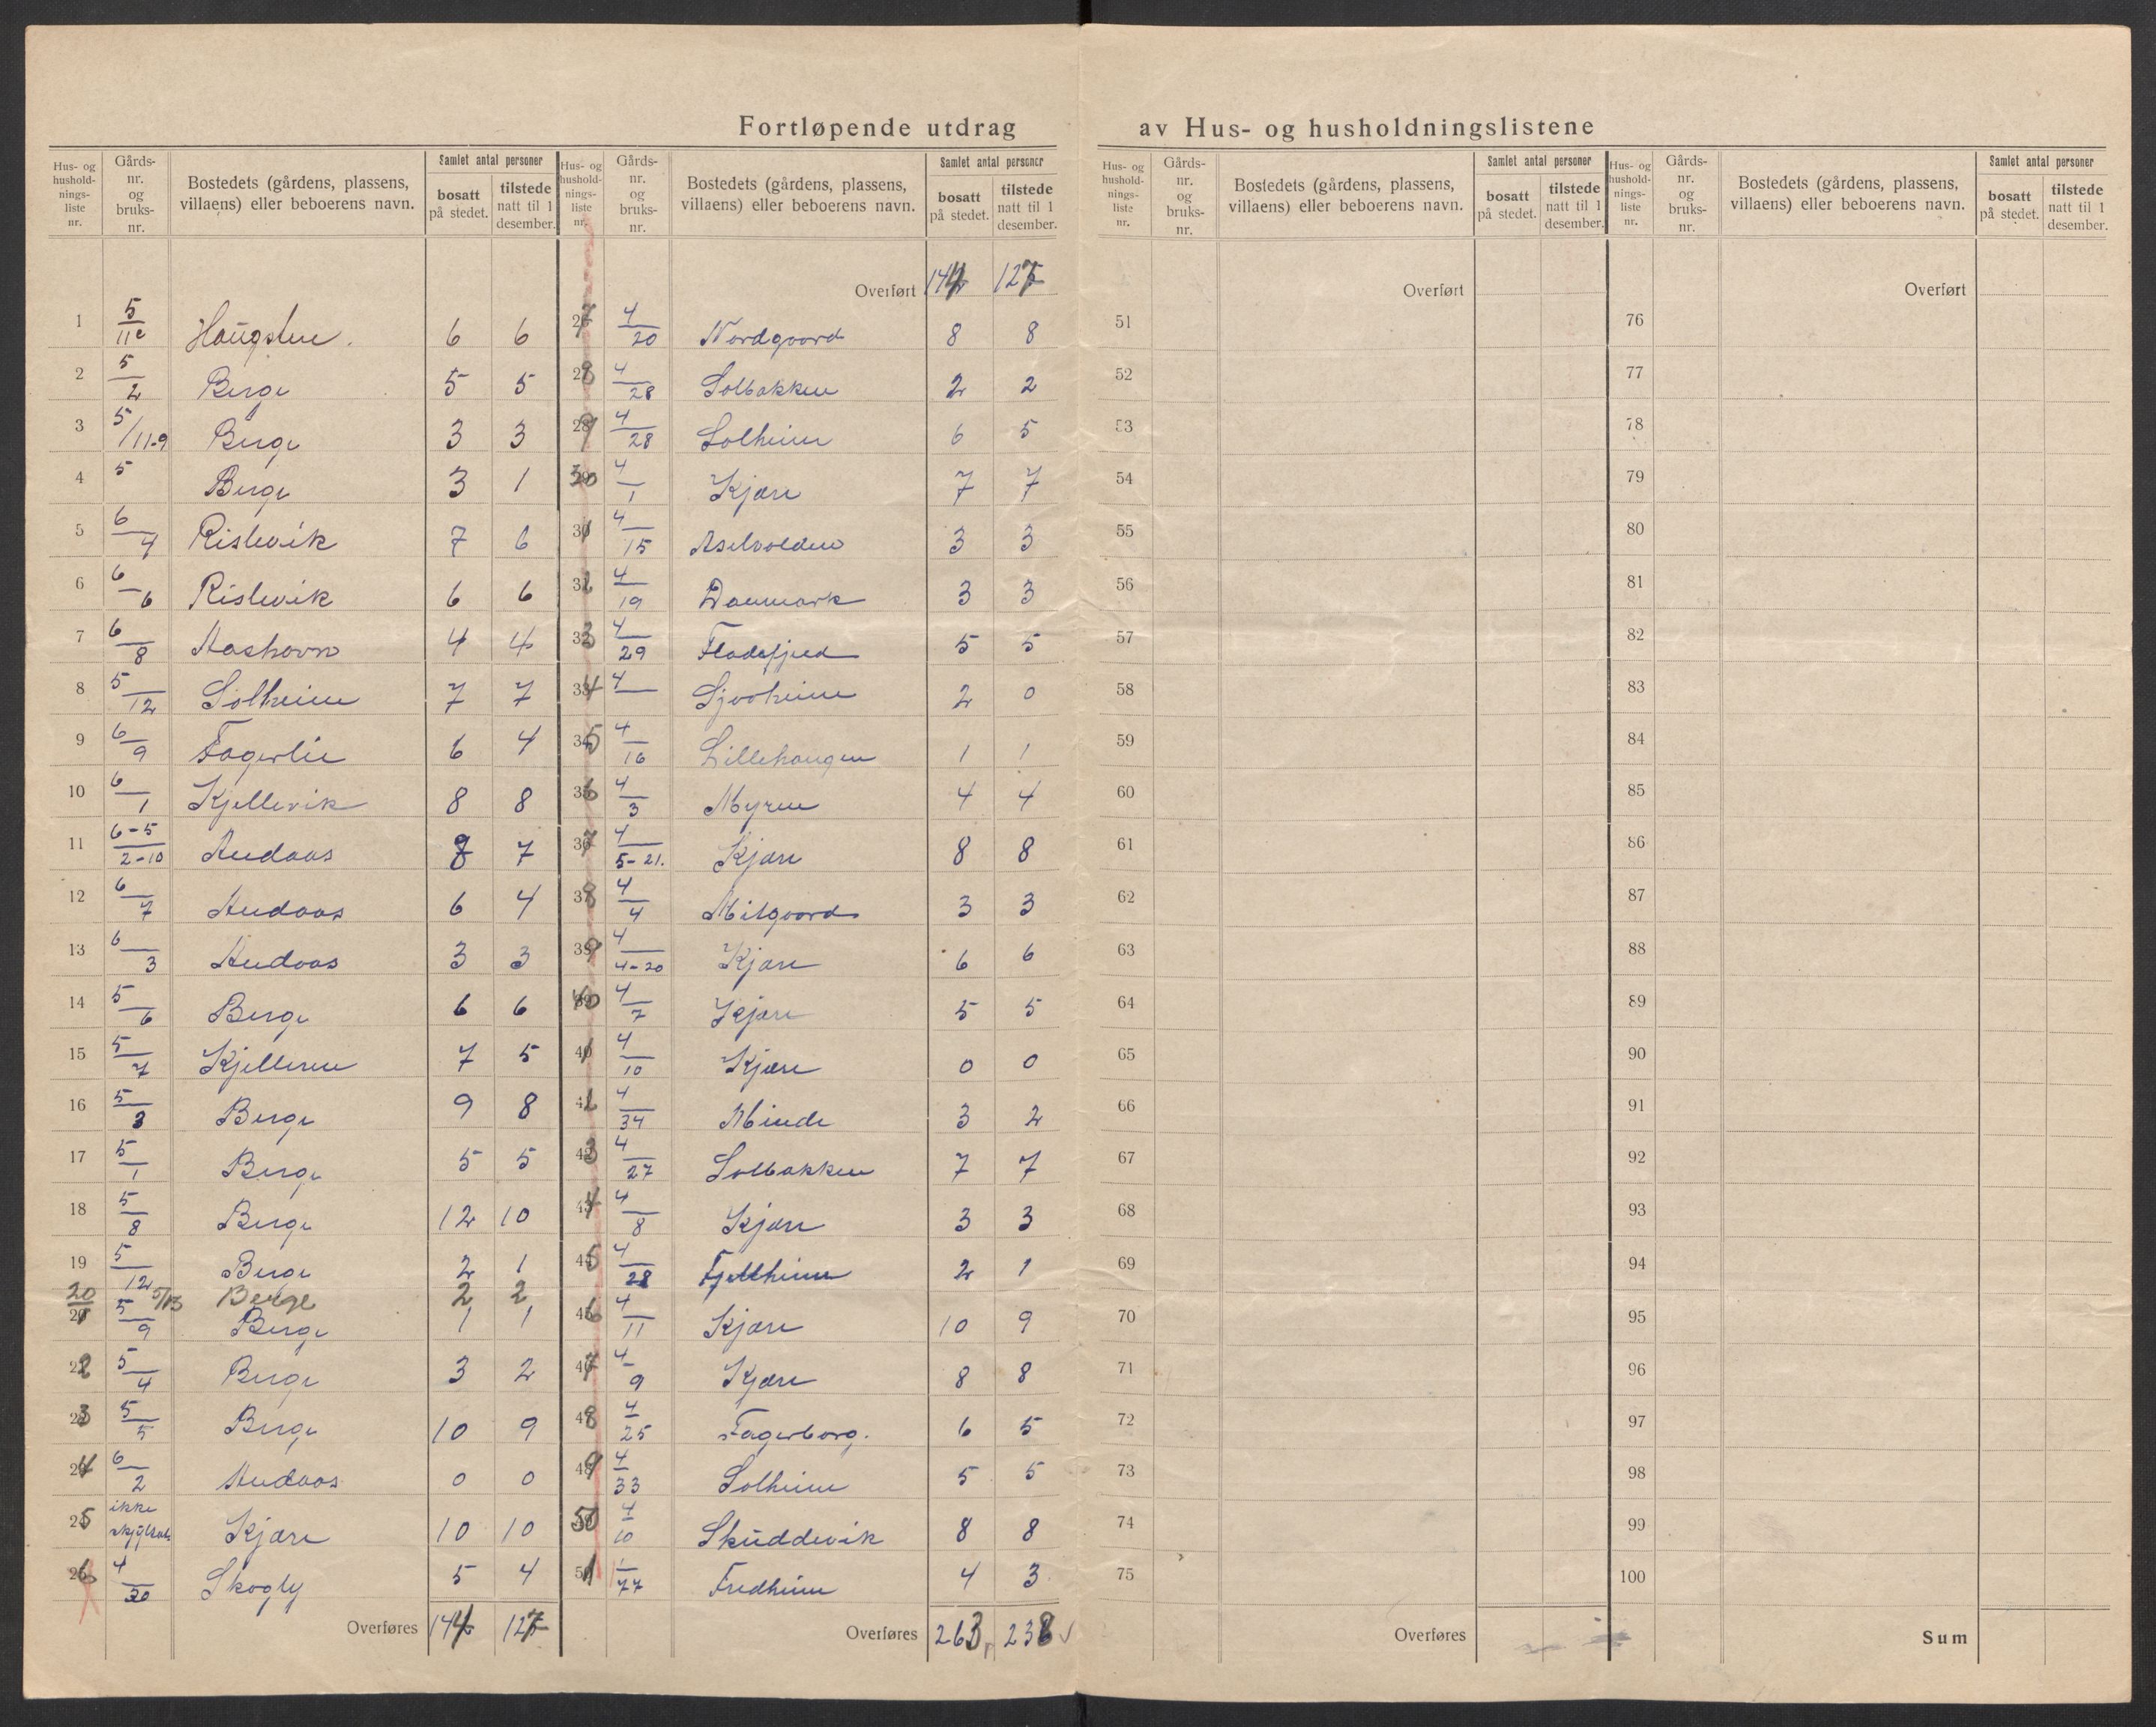 Fortløpende utdrag av Hus- og husholdningslistene
Hus- og hushold-nings-liste nr. Gårds-nr. og bruks-nr. Bostedets (gårdens, plassens, villaens) eller beboerens navn. Samlet antal personer bosatt på stedet. tilstede natt til 1 desember.
1 5/11c Haugsten. 6 6
2 5/2 Berge 5 5
3 5/11-9 Berge 3 3
4 5 Berge 3 1
5 6/4 Rislevik 7 6
6 6/6 Rislevik 6 6
7 6/8 Aashavn 4 4
8 5/12 Solheim 7 7
9 6/9 Fagerlie 6 4
10 6/1 Kjellevik 8 8
11 6-5/2-10 Audaas 8 7
12 6/7 Audaas 6 4
13 6/3 Audaas 3 3
14 5/6 Berge 6 6
15 5/7 Kjelleren 7 5
16 5/3 Berge 9 8
17 5/1 Berge 5 5
18 5/8 Berge 12 10
19 5/12 Berge 2 1
20 5/13 Berge 2 2
21 5/9 Berge 1 1
22 5/4 Berge 3 2
23 5/5 Berge 10 9
24 6/2 Audaas 0 0
25 ikke Kjære 10 10
26 4/30 Skogly 5 4
Overføres 144 127
Hus- og hushold-nings-liste nr. Gårds-nr. og bruks-nr. Bostedets (gårdens, plassens, villaens) eller beboerens navn. Samlet antal personer bosatt på stedet. tilstede natt til 1 desember.
Overført 144 127
27 4/20 Nordgaard 8 8
28 4/28 Solbakken 2 2
29 4/28 Solheim 6 5
30 4/1 Kjære 7 7
31 4/15 3 3
32 4/19 Danmark 3 3
33 4/29 Fladefjeld 5 5
34 4 Sjøoheim 2 0
35 4/16 Lillehaugen 1 1
36 4/3 Myren 4 4
37 4/5-21. Kjære 8 8
38 4/4 Mitgaard 3 3
39 4/4-20 Kjære 6 6
40 4/7 Kjære 5 5
41 4/10 Kjære 0 0
42 4/34 Minde 3 2
43 4/27 Solbakken 7 7
44 4/8 Kjære 3 3
45 4/28 Fjellheim 2 1
46 4/11 Kjære 10 9
47 4/9 Kjære 8 8
48 4/25 Fagerborg. 6 5
49 4/33 Solheim 5 5
50 4/10 Skuddevik 8 8
51 1/77 Fredheim 4 3
Overføres 263 238
Hus- og hushold-nings-liste nr. Gårds-nr. og bruks-nr. Bostedets (gårdens, plassens, villaens) eller beboerens navn. Samlet antal personer bosatt på stedet. tilstede natt til 1 desember.
Overført
51
52
53
54
55
56
57
58
59
60
61
62
63
64
65
66
67
68
69
70
71
72
73
74
75
Overføres
Hus- og hushold-nings-liste nr. Gårds-nr. og bruks-nr. Bostedets (gårdens, plassens, villaens) eller beboerens navn. Samlet antal personer bosatt på stedet. tilstede natt til 1 desember.
Overført
76
77
78
79
80
81
82
83
84
85
86
87
88
89
90
91
92
93
94
95
96
97
98
99
100
Sum